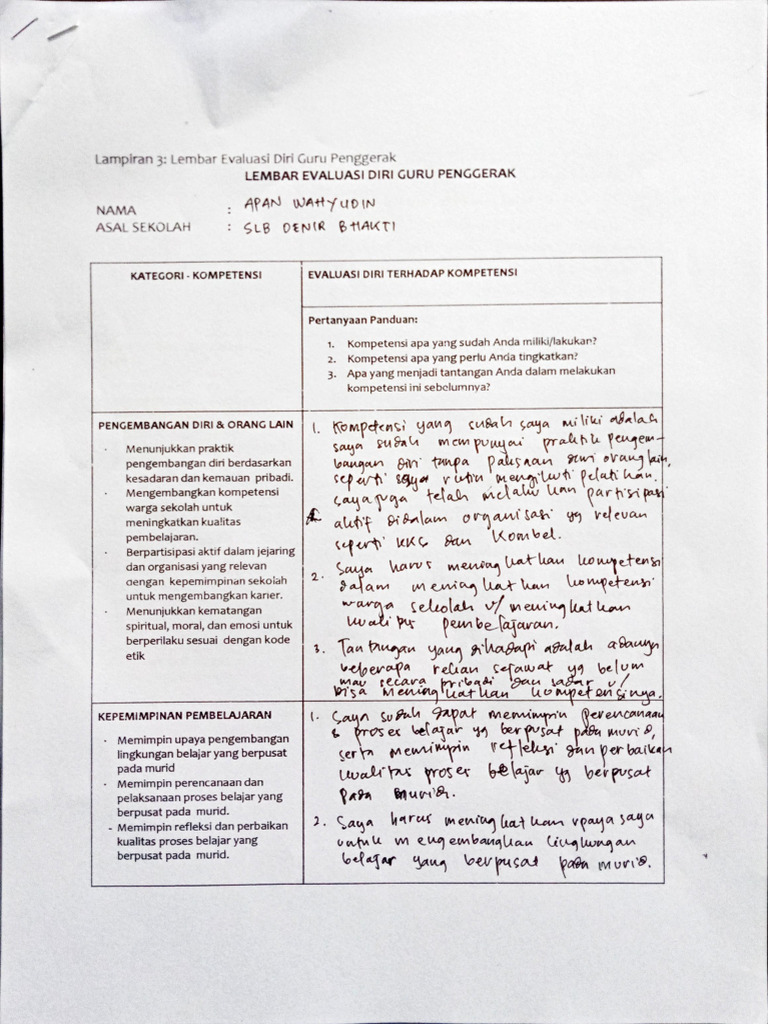 Lampiran 3: Lembar Evaluasi Diri Guru Penggerak
LEMBAR EVALUASI DIRI GURU PENGGERAK
NAMA : APAN WAHYUDIN
ASAL SEKOLAH : SLB DENIR BHAKTI
KATEGORI - KOMPETENSI
EVALUASI DIRI TERHADAP KOMPETENSI
Pertanyaan Panduan:
1. Kompetensi apa yang sudah Anda miliki/lakukan?
2. Kompetensi apa yang perlu Anda tingkatkan?
3. Apa yang menjadi tantangan Anda dalam melakukan
kompetensi ini sebelumnya?
PENGEMBANGAN DIRI & ORANG LAIN
· Menunjukkan praktik
pengembangan diri berdasarkan
kesadaran dan kemauan pribadi.
· Mengembangkan kompetensi
warga sekolah untuk
meningkatkan kualitas
pembelajaran.
· Berpartisipasi aktif dalam jejaring
dan organisasi yang relevan
dengan kepemimpinan sekolah
untuk mengembangkan karier.
· Menunjukkan kematangan
spiritual, moral, dan emosi untuk
berperilaku sesuai dengan kode
etik
1. Kompetensi yang sudah saya miliki adalah
saya sudah mempunyai praktik pengem-
bangan diri tanpa paksaan dari orang lain,
seperti saya rutin mengikuti pelatihan.
saya juga telah melakukan partisipasi
aktif didalam organisasi yg relevan
seperti KKG dan Kombel.
2. Saya harus meningkatkan kompetensi
dalam meningkatkan kompetensi
warga sekolah u/ meningkatkan
kualitas pembelajaran.
3. Tantangan yang dihadapi adalah adanya
beberapa rekan sejawat yg belum
mau secara pribadi dan sadar u/
bisa meningkatkan kompetensinya.
KEPEMIMPINAN PEMBELAJARAN
· Memimpin upaya pengembangan
lingkungan belajar yang berpusat
pada murid
· Memimpin perencanaan dan
pelaksanaan proses belajar yang
berpusat pada murid.
- Memimpin refleksi dan perbaikan
kualitas proses belajar yang
berpusat pada murid.
1. Saya sudah dapat memimpin perencanaan
& proses belajar yg berpusat pada murid,
serta memimpin refleksi dan perbaikan
kualitas proses belajar yg berpusat
pada murid.
2. Saya harus meningkatkan upaya saya
untuk mengembangkan lingkungan
belajar yang berpusat pada murid.